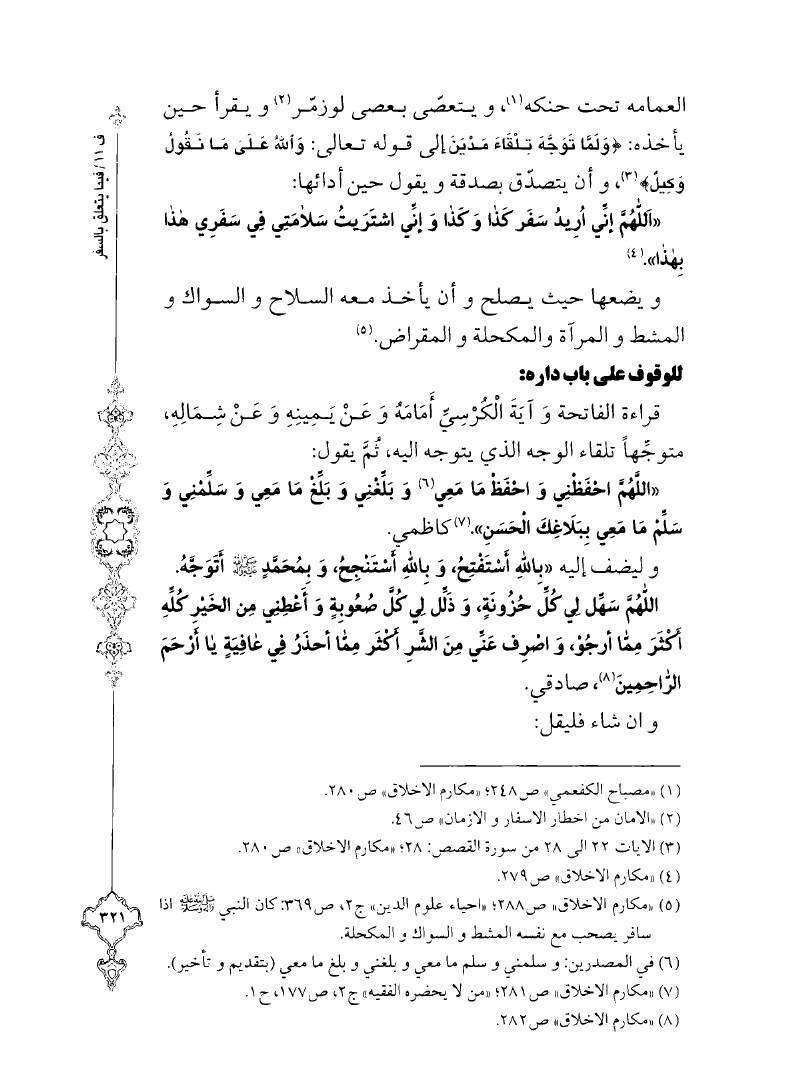 العمامه تحت حنكه(١)، و يتعصّى بعصى لوزمّر(٢) و يقرأ حين
يأخذه: ﴿وَلَمَّا تَوَجَّهَ تِلْقَاءَ مَدْيَنَ إلى قوله تعالى: وَاللهُ عَلَى مَا نَقُولُ
وَكِيلٌ﴾(٣)، و أن يتصدّق بصدقة و يقول حين أدائها:
«اَللّٰهُمَّ إنِّي اُرِيدُ سَفَر كَذٰا وَ كَذٰا وَ إنِّي اشتَرَيتُ سَلاٰمَتِي فِي سَفَرِي هٰذٰا
بِهٰذٰا».(٤)
و يضعها حيث يصلح و أن يأخذ معه السلاح و السواك و
المشط و المرآة والمكحلة و المقراض.(٥)
للوقوف على باب داره:
قراءة الفاتحة وَ آيَةَ الْكُرْسِيِّ أَمَامَهُ وَ عَنْ يَمِينِهِ وَ عَنْ شِمَالِهِ،
متوجِّهاً تلقاء الوجه الذي يتوجه اليه، ثُمَّ يقول:
«اللَّهُمَّ احْفَظْنِي وَ احْفَظْ مَا مَعِي(٦) وَ بَلِّغْنِي وَ بَلِّغْ مَا مَعِي وَ سَلِّمْنِي وَ
سَلِّمْ مَا مَعِي بِبَلَاغِكَ الْحَسَنِ».(٧) كاظمي.
و ليضف إليه «بِاللهِ أَسْتَفْتِحُ، وَ بِاللهِ أَسْتَنْجِحُ، وَ بِمُحَمَّدٍ ﷺ أَتَوَجَّهُ.
اللّٰهُمَّ سَهِّل لِي كُلَّ حُزُونَةٍ، وَ ذَلِّل لِي كُلَّ صُعُوبةٍ وَ أعْطِنِي مِن الخَيْرِ كُلِّهِ
أَكْثَرَ مِمّٰا أرجُوْ، وَ اصْرِف عَنِّي مِنَ الشَّرِ أَكْثَر مِمّٰا أحذَرُ فِي عٰافِيَةٍ يٰا أرْحَمَ
الرّٰاحِمِينَ(٨)، صادقي.
و ان شاء فليقل:
(١) «مصباح الكفعمي» ص٢٤٨؛ «مكارم الاخلاق» ص ٢٨٠.
(٢) «الامان من اخطار الاسفار و الازمان» ص٤٦.
(٣) الايات ٢٢ الى ٢٨ من سورة القصص: ٢٨؛ «مكارم الاخلاق» ص ٢٨٠.
(٤) «مكارم الاخلاق» ص٢٧٩.
(٥) «مكارم الاخلاق» ص٢٨٨؛ «احياء علوم الدين» ج٢، ص٣٦٩: كان النبي ﷺ اذا
سافر يصحب مع نفسه المشط و السواك و المكحلة.
(٦) في المصدرين: و سلمني و سلم ما معي و بلغني و بلغ ما معي (بتقديم و تأخير).
(٧) «مكارم الاخلاق» ص٢٨١؛ «من لا يحضره الفقيه» ج٢، ص١٧٧، ح١.
(٨) «مكارم الاخلاق» ص٢٨٢.
ف ١١ / فيما يتعلق بالسفر
٣٢١